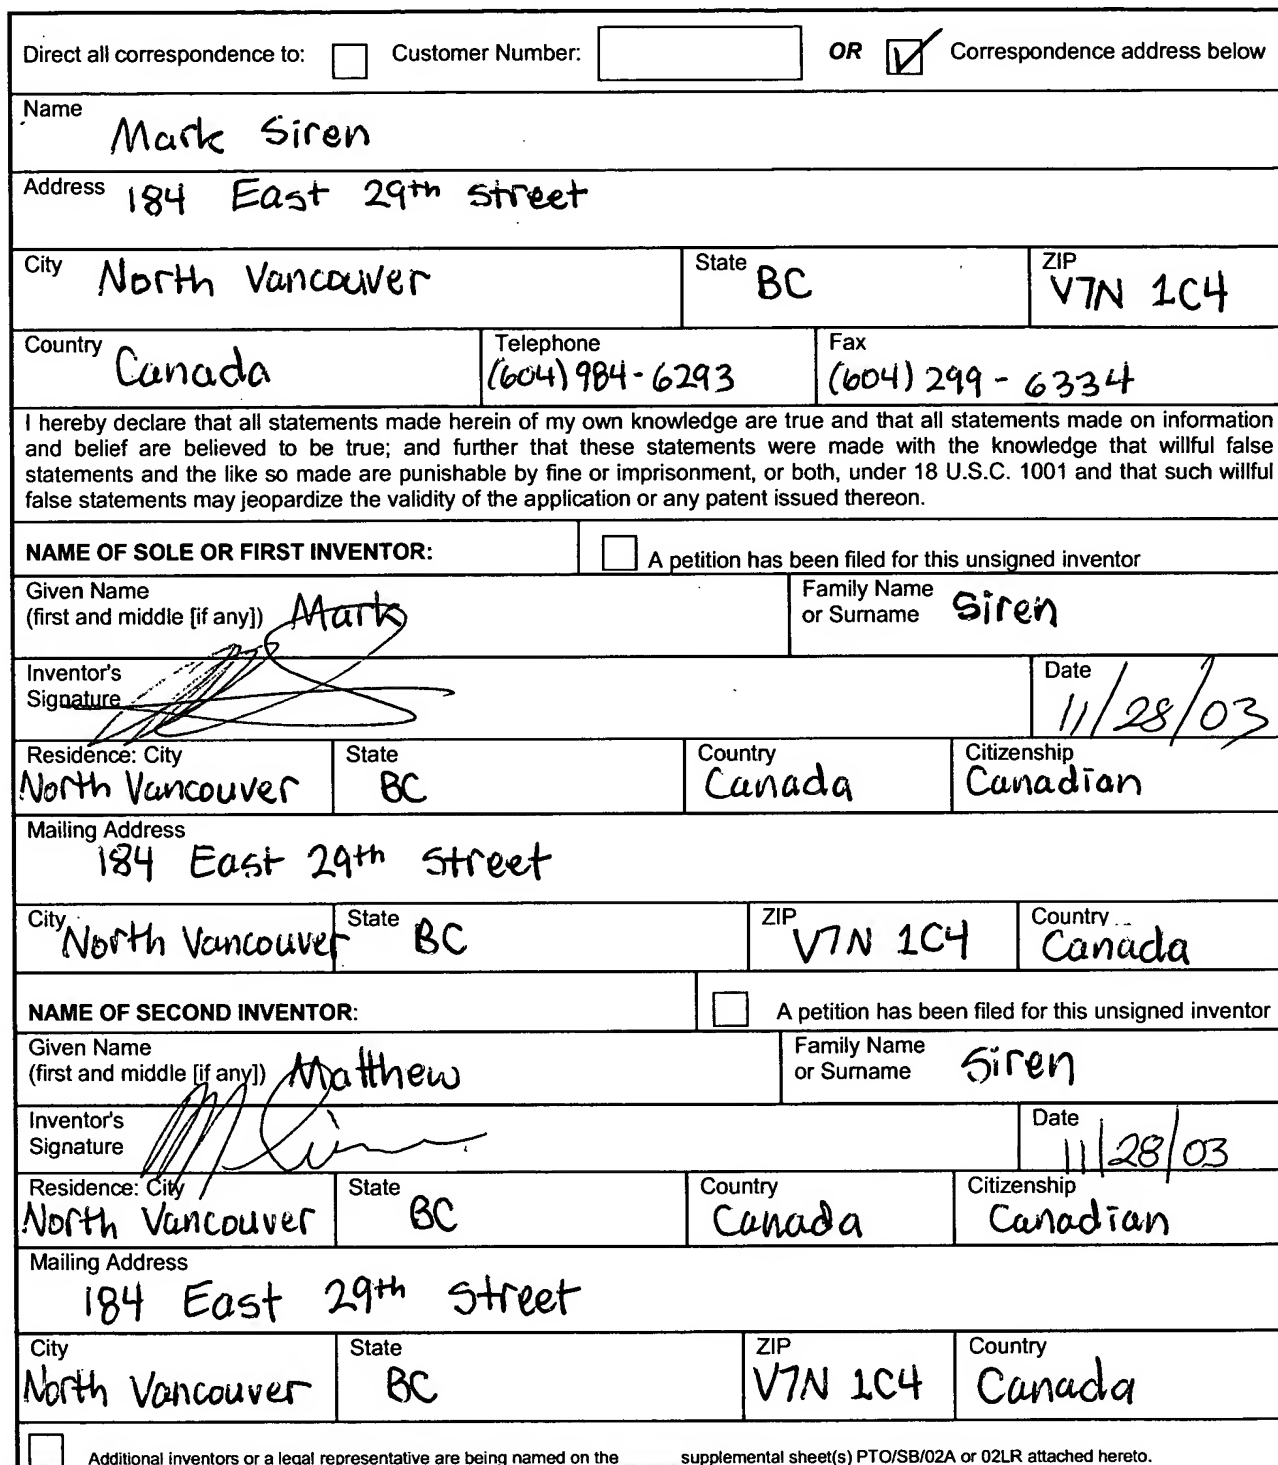 Direct all correspondence to: Customer Number: OR Correspondence address below
Name
Mark Siren
Address 184 East 29th street
City North Vancouver State BC ZIP V7N 1C4
Country Canada Telephone (604) 984-6293 Fax (604) 299-6334
I hereby declare that all statements made herein of my own knowledge are true and that all statements made on information
and belief are believed to be true; and further that these statements were made with the knowledge that willful false
statements and the like so made are punishable by fine or imprisonment, or both, under 18 U.S.C. 1001 and that such willful
false statements may jeopardize the validity of the application or any patent issued thereon.
NAME OF SOLE OR FIRST INVENTOR: A petition has been filed for this unsigned inventor
Given Name
(first and middle [if any]) Mark
Family Name
or Surname Siren
Inventor's
Signature
Date
11/28/03
Residence: City State Country Citizenship
North Vancouver BC Canada Canadian
Mailing Address
184 East 29th street
City North Vancouver State BC ZIP V7N 1C4 Country Canada
NAME OF SECOND INVENTOR: A petition has been filed for this unsigned inventor
Given Name
(first and middle [if any]) Matthew
Family Name
or Surname Siren
Inventor's
Signature
Date
11/28/03
Residence: City State Country Citizenship
North Vancouver BC Canada Canadian
Mailing Address
184 East 29th street
City State ZIP Country
North Vancouver BC V7N 1C4 Canada
Additional inventors or a legal representative are being named on the supplemental sheet(s) PTO/SB/02A or 02LR attached hereto.